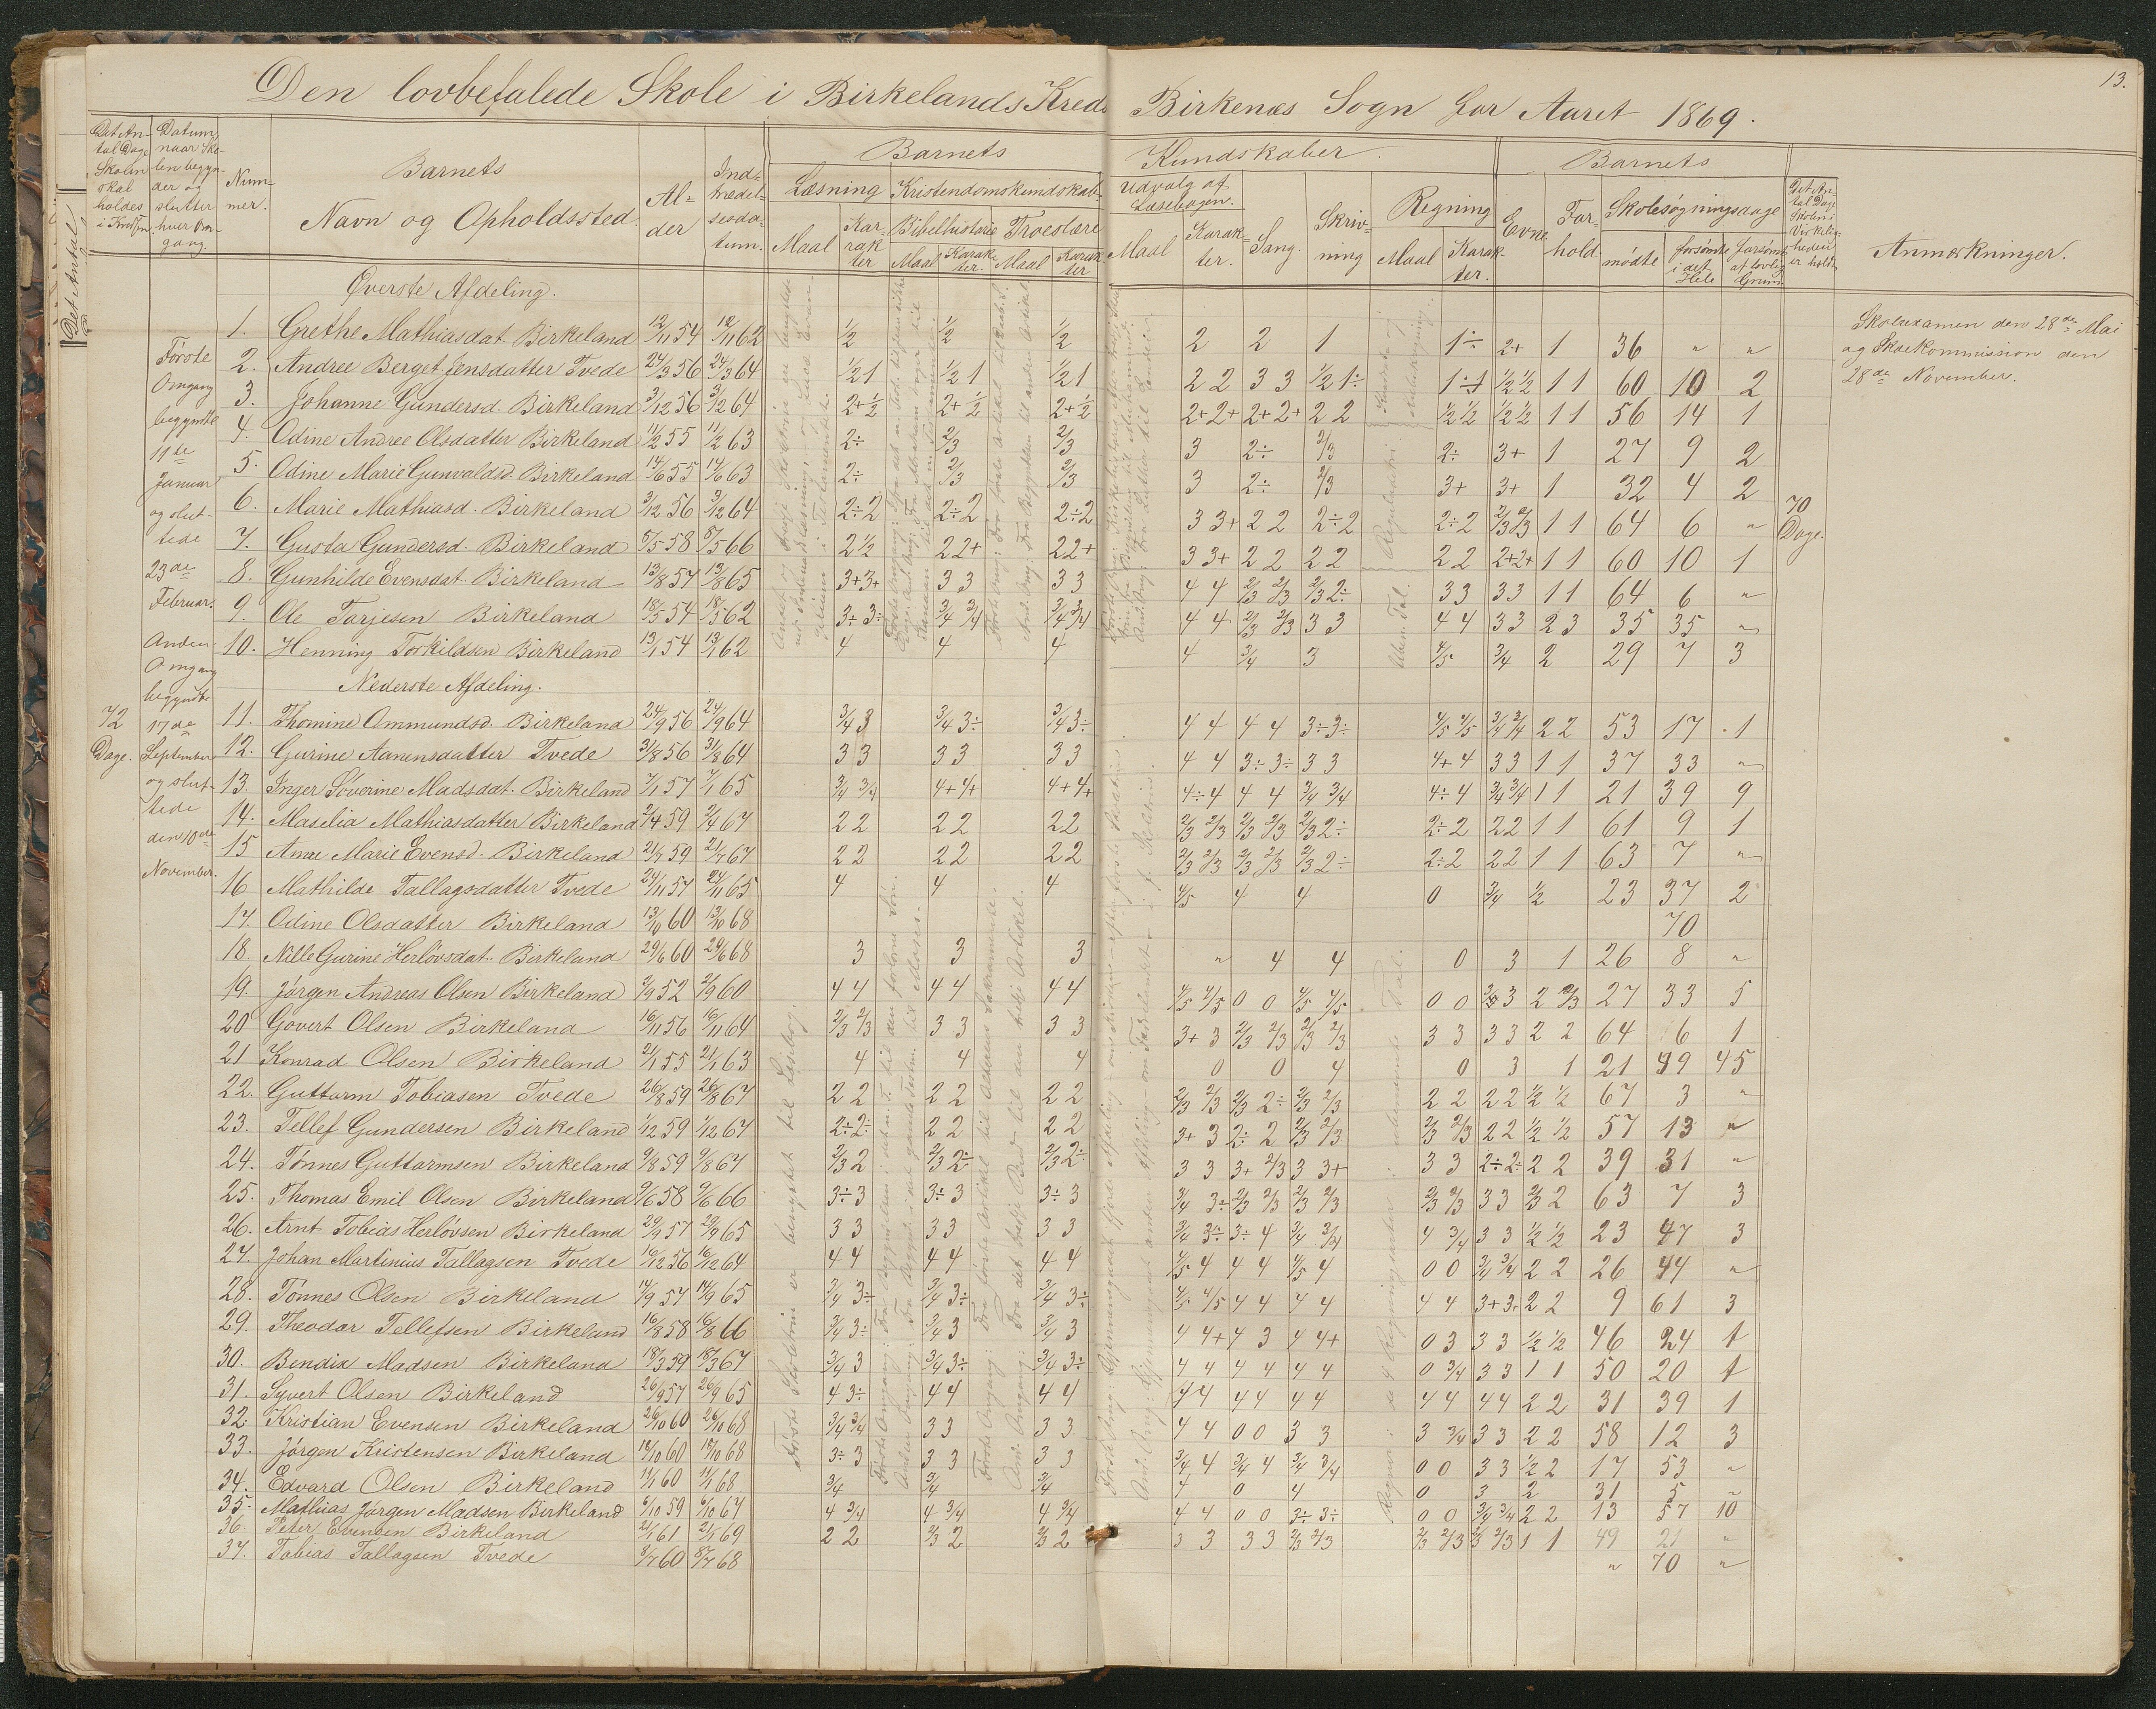 13.
Den lovbefalede Skole i Birkelands Kreds Birkenæs Sogn for Aaret 1869.
Det Antal Dage Skolen skal holdes i Kredsen
Datum, naar Skolen begynder og slutter hver Omgang.
Nummer.
Barnets
Navn og Opholdssted.
Alder
Indtrædelsesdatum.
Barnets Kundskaber.
Læsning
Maal
Karakter
Kristendomskundskab
Bibelhistorie
Maal
Karakter.
Troeslære
Maal
Karakter
Udvalg af Læsebogen.
Maal
Karakter.
Sang.
Skrivning
Regning
Maal
Karakter.
Barnets
Evne
Forhold
Skolesøgningsdage
mødte
forsømte i det Hele
forsømte af lovlig Grund
Det Antal Dage Skolen i Virkeligheden er holdt
Anmærkninger.
Det Antal
Øverste Afdeling.
1. Grethe Mathiasdat. Birkeland 12/11 54 12/11 62 1/2 1/2 1/2 2 2 1 1÷ 2+ 1 36 " "
2. Andree Berget Jensdatter Tvede 24/3 56 24/3 64 1/2 1 1/2 1 1/2 1 2 2 3 3 1/2 1÷ 1÷1 1/2 1/2 1 1 60 10 2
3. Johanne Gundersd. Birkeland 3/12 56 3/12 64 2+ 1/2 2+ 1/2 2+ 1/2 2+ 2+ 2+ 2+ 2 2 1/2 1/2 1/2 1/2 1 1 56 14 1
4. Odine Andree Olsdatter Birkeland 11/2 55 11/2 63 2÷ 2/3 2/3 3 2÷ 2/3 2÷ 3+ 1 27 9 2
5. Odine Marie Gunvaldsd. Birkeland 14/6 55 14/6 63 2÷ 2/3 2/3 3 2÷ 2/3 3+ 3+ 1 32 4 2
6. Marie Mathiasd. Birkeland 3/12 56 3/12 64 2÷2 2÷2 2÷2 3 3+ 2 2 2÷2 2÷2 2/3 2/3 1 1 64 6 "
7. Gusta Gundersd. Birkeland 8/5 58 8/5 66 2 1/2 2 2+ 2 2+ 3 3+ 2 2 2 2 2 2 2+2+ 1 1 60 10 1
8. Gunhilde Evensdat. Birkeland 13/8 57 13/8 65 3+3+ 3 3 3 3 4 4 2/3 2/3 2/3 2÷ 3 3 3 3 1 1 64 6 "
9. Ole Torjesen Birkeland 18/5 54 18/5 62 3÷ 3÷ 3/4 3/4 3/4 3/4 4 4 2/3 2/3 3 3 4 4 3 3 2 3 35 35 "
10. Henning Torkildsen Birkeland 13/1 54 13/1 62 4 4 4 4 3/4 3 4/5 3/4 2 29 7 3
Nederste Afdeling.
11. Thomine Ommundsd. Birkeland 24/9 56 24/9 64 3/4 3 3/4 3÷ 3/4 3÷ 4 4 4 4 3÷3÷ 4/5 4/5 3/4 3/4 2 2 53 17 1
12. Gurine Aanensdatter Tvede 31/8 56 31/8 64 3 3 3 3 3 3 4 4 3÷3÷ 3 3 4+ 4 3 3 1 1 37 33 "
13. Inger Severine Madsdat. Birkeland 7/1 57 7/1 65 3/4 3/4 4+4+ 4+4+ 4÷4 4 4 3/4 3/4 4÷4 3/4 3/4 1 1 21 39 9
14. Maselia Mathiasdatter Birkeland 2/4 59 2/4 67 2 2 2 2 2 2 2/3 2/3 2/3 2/3 2/3 2÷ 2÷2 2 2 1 1 61 9 1
15 Anne Marie Evensd. Birkeland 21/7 59 21/7 67 2 2 2 2 2 2 2/3 2/3 2/3 2/3 2/3 2÷ 2÷2 2 2 1 1 63 7 "
16 Mathilde Tallagsdatter Tvede 24/11 57 24/11 65 4 4 4 4/5 4 4 0 3/4 1/2 23 37 2
17. Odine Olsdatter Birkeland 13/10 60 13/10 68 70
18. Nille Gurine Herløvsdat. Birkeland 29/6 60 29/6 68 3 3 3 " 4 4 0 3 1 26 8 "
19. Jørgen Andreas Olsen Birkeland 2/9 52 2/9 60 4 4 4 4 4 4 4/5 4/5 0 0 4/5 4/5 0 0 3 2 2/3 27 33 5
20 Govert Olsen Birkeland 16/11 56 16/11 64 2/3 2/3 3 3 3 3 3+ 3 2/3 2/3 2/3 2/3 3 3 3 3 2 2 64 6 1
21 Konrad Olsen Birkeland 21/1 55 21/1 63 4 4 4 0 0 4 0 3 1 21 49 45
22. Guttorm Tobiasen Tvede 26/8 59 26/8 67 2 2 2 2 2 2 2/3 2/3 2/3 2÷ 2/3 2/3 2 2 2 2 1/2 1/2 67 3 "
23. Tellef Gundersen Birkeland 1/12 59 1/12 67 2÷2÷ 2 2 2 2 3+ 3 2÷ 2 2/3 2/3 2/3 2/3 2 2 1/2 1/2 57 13 "
24. Tønnes Guttormsen Birkeland 9/8 59 9/8 67 2/3 2 2/3 2÷ 2/3 2÷ 3 3 3+ 2/3 3 3+ 3 3 2÷2÷ 2 2 39 31 "
25. Thomas Emil Olsen Birkeland 9/6 58 9/6 66 3÷3 3÷3 3÷3 3/4 3÷ 2/3 2/3 2/3 2/3 2/3 2/3 3 3 2/3 2 63 7 3
26. Arnt Tobias Herløvsen Birkeland 29/9 57 29/9 65 3 3 3 3 3 3 3/4 3÷ 3÷ 4 3/4 3/4 4 3/4 3 3 1/2 1/2 23 47 3
27. Johan Martinius Tallagsen Tvede 16/12 56 16/12 64 4 4 4 4 4 4 4/5 4 4 4 4/5 4 0 0 3/4 3/4 2 2 26 44 "
28. Tønnes Olsen Birkeland 14/9 57 14/9 65 3/4 3÷ 3/4 3÷ 3/4 3÷ 4/5 4/5 4 4 4 4 4 4 3+3+ 2 2 9 61 3
29. Theodor Tellefsen Birkeland 16/8 58 16/8 66 3/4 3÷ 3/4 3 3/4 3 4 4+ 4 3 4 4+ 0 3 3 3 1/2 1/2 46 24 1
30. Bendix Madsen Birkeland 18/3 59 18/3 67 3/4 3 3/4 3÷ 3/4 3÷ 4 4 4 4 4 4 0 3/4 3 3 1 1 50 20 1
31. Syvert Olsen Birkeland 26/9 57 26/9 65 4 3÷ 4 4 4 4 4 4 4 4 4 4 4 4 4 4 2 2 31 39 1
32. Kristian Evensen Birkeland 26/10 60 26/10 68 3/4 3/4 3 3 3 3 4 4 0 0 3 3 3 3/4 3 3 2 2 58 12 3
33. Jørgen Kristensen Birkeland 18/10 60 18/10 68 3÷3 3 3 3 3 3/4 4 3/4 4 3/4 3/4 0 0 3 3 1/2 2 17 53 "
34. Edvard Olsen Birkeland 11/1 60 11/1 68 3/4 3/4 3/4 4 0 4 0 3 2 31 5 "
35. Mathias Jørgen Madsen Birkeland 6/10 59 6/10 67 4 3/4 4 3/4 4 3/4 4 4 0 0 3÷ 3÷ 0 0 3/4 3/4 2 2 13 57 10
36. Peter Evensen Birkeland 2/1 61 2/1 69 2 2 2/3 2 2/3 2 3 3 3 3 2/3 2/3 2/3 2/3 2/3 2/3 1 1 49 21 "
37. Tobias Tallagsen Tvede 8/7 60 8/7 68 " 70 "
72
Dage.
Første
Omgang
begyndte
11te
Januar
og slut-
tede
23de
Februar.
Anden
Omgang
begyndte
17de
September
og slut-
tede
den 10de
November.
70
Dage.
Skoleexamen den 28de Mai
og Skolekommission den
28de November.